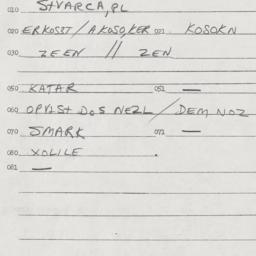 010 STVARCA,PL
020 ERKOSST / AKOSO,KER 021 KOSOKN
030 ZEEN // ZEN
050 KATAR 051 —
060 OPVIST DOS NEZL / DEM NOZ
070 SMARK 071 —
080 XOLILE .
081 —